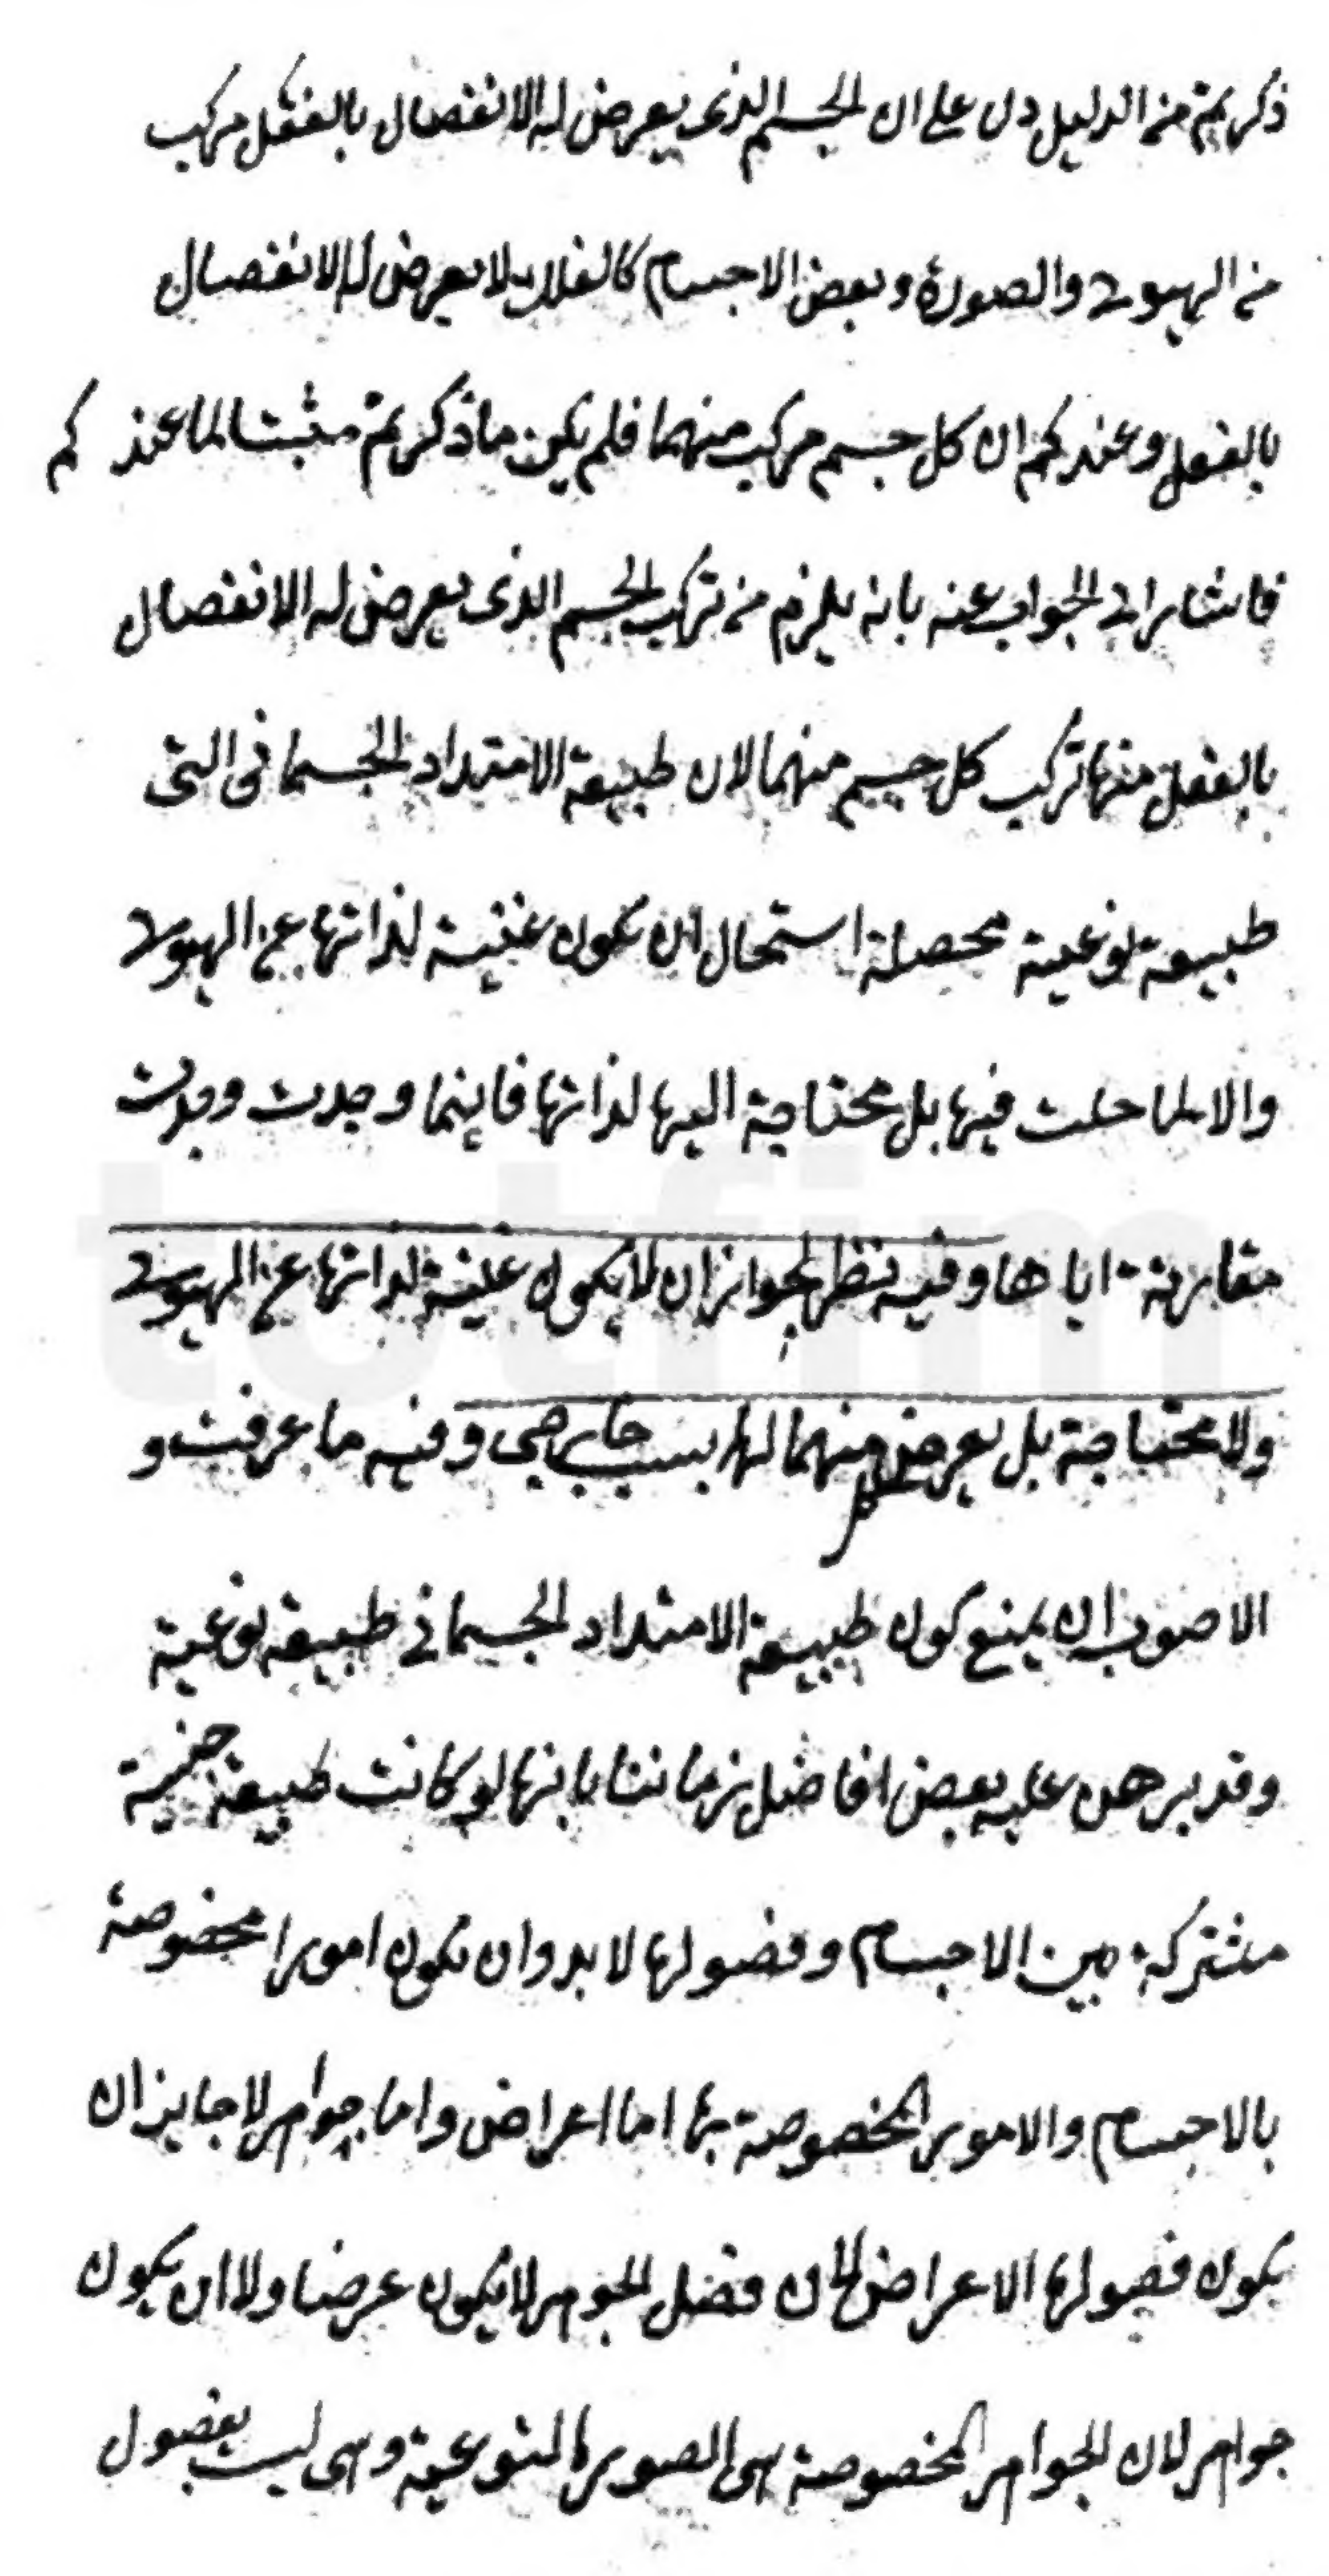 ذكرتم من الدليل دل على ان الجسم الذى يعرض له الانفصال بالفعل مركب
من الهيولى والصورة وبعض الاجسام كالفلك لا يعرض له الانفصال
بالفعل وعندكم ان كل جسم مركب منهما فلم يكن ما ذكرتم مثبتا لما عند كم
فاشار الى الجواب عنه بانه يلزم من تركب الجسم الذى يعرض له الانفصال
بالفعل منهما تركب كل جسم منهما لان طبيعة الامتداد الجسمانى التى
طبيعة نوعية محصلة استحال ان تكون غنية لذاتها عن الهيولى
والا لما حلت فيها بل محتاجة اليها لذاتها فاينما وجدت وجدت
مقارنة اياها وفيه نظر لجواز ان لا يكون غنية لذاتها عن الهيولى
ولا محتاجة بل يعرض منهما لها بسبب خارجى وفيه ما عرفت و
الاصوب ان يمنع كون طبيعة الامتداد الجسمانى طبيعة نوعية
وقد برهن عليه بعض افاضل زماننا بانها لو كانت طبيعة جنسية
مشتركة بين الاجسام وفصولها لا بد وان تكون امورا مخصوصة
بالاجسام والامور المخصوصة بها اما اعراض واما جواهر لا جايز ان
يكون فصولها الاعراض لان فصل الجوهر لا يكون عرضا ولا ان يكون
جواهر لان الجواهر المخصوصة هى الصور النوعية وهى ليست بفصول